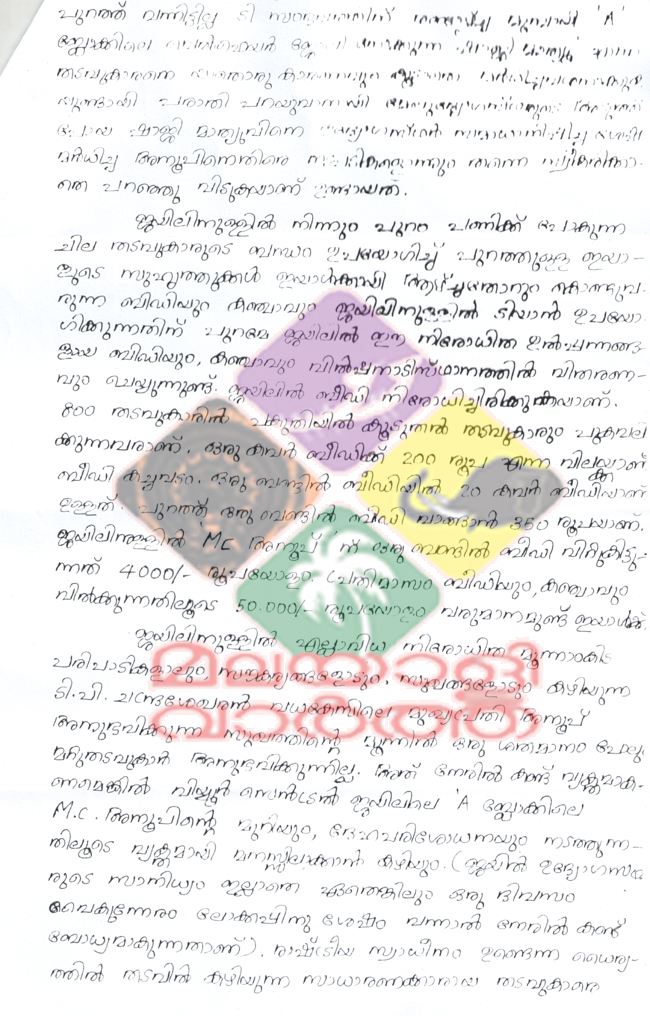 പുറത്ത് വന്നിട്ടില്ല ടി 'A'
ബ്ലോക്കിലെ
തടവുകാരനെ
പരാതി പറയുവാനായി
പോയ ഷാജി മാത്യുവിനെ
മർദിച്ച അനൂപിനെതിരെ തന്നെ സ്വീകരിക്കാ-
തെ പറഞ്ഞു വിടുകയാണ് ഉണ്ടായത്.
ജയിലിനുള്ളിൽ നിന്നും പുറം പണിക്ക് പോകുന്ന
ചില തടവുകാരുടെ ബന്ധം ഉപയോഗിച്ച് പുറത്തുള്ള ഇയാ-
ളുടെ സുഹൃത്തുക്കൾ ഇയാൾക്കായി കൊണ്ടുവ-
രുന്ന ബീഡിയും കഞ്ചാവും ജയിലിനുള്ളിൽ ടിയാൻ ഉപയോ-
ഗിക്കുന്നതിന് പുറമേ ജയിലിൽ ഈ നിരോധിത ഉൽപ്പന്നങ്ങ-
ളായ ബീഡിയും, കഞ്ചാവും വിൽപ്പനാടിസ്ഥാനത്തിൽ വിതരണ-
വും ചെയ്യുന്നുണ്ട്. ജയിലിൽ ബീഡി നിരോധിച്ചിരിക്കുകയാണ്.
800 തടവുകാരിൽ പകുതിയിൽ കൂടുതൽ തടവുകാരും പുകവലി-
ക്കുന്നവരാണ്. ഒരു കവർ ബീഡിക്ക് 200 രൂപ എന്ന വിലയ്ക്കാണ്
ബീഡി കച്ചവടം. ഒരു ബണ്ടിൽ ബീഡിയിൽ 20 കവർ ബീഡിയാണ്
ഉള്ളത്. പുറത്ത് ഒരു ബണ്ടിൽ ബീഡി വാങ്ങാൻ 350 രൂപയാണ്.
ജയിലിനുള്ളിൽ 'MC അനൂപ്' ന് ഒരു ബണ്ടിൽ ബീഡി വിറ്റുകിട്ടു-
ന്നത് 4000/- രൂപയോളം. പ്രതിമാസം ബീഡിയും, കഞ്ചാവും
വിൽക്കുന്നതിലൂടെ 50.000/- രൂപയോളം വരുമാനമുണ്ട് ഇയാൾക്ക്.
ജയിലിനുള്ളിൽ എല്ലാവിധ നിരോധിത മൂന്നാംകിട
പരിപാടികളാലും, സൗകര്യങ്ങളോടും, സുഖങ്ങളോടും കഴിയുന്ന
ടി.പി. ചന്ദ്രശേഖരൻ വധക്കേസിലെ മുഖ്യപ്രതി അനൂപ്
അനുഭവിക്കുന്ന സുഖത്തിന്റെ മുന്നിൽ ഒരു ശതമാനം പോലും
മറ്റുതടവുകാർ അനുഭവിക്കുന്നില്ല. അത് നേരിൽ കണ്ട് വ്യക്തമാക-
ണമെങ്കിൽ വിയ്യൂർ സെൻട്രൽ ജയിലിലെ 'A ബ്ലോക്കിലെ
M.C. അനൂപിന്റെ മുറിയും, ദേഹപരിശോധനയും നടത്തുന്ന-
തിലൂടെ വ്യക്തമായി മനസ്സിലാക്കാൻ കഴിയും. (ജയിൽ ഉദ്യോഗസ്ഥ-
രുടെ സാന്നിധ്യം ഇല്ലാതെ ഏതെങ്കിലും ഒരു ദിവസം
വൈകുന്നേരം ലോക്കപ്പിനു ശേഷം വന്നാൽ നേരിൽ കണ്ട്
ബോധ്യമാകുന്നതാണ്). രാഷ്ട്രീയ സ്വാധീനം ഉണ്ടെന്ന ധൈര്യ-
ത്തിൽ തടവിൽ കഴിയുന്ന സാധാരണക്കാരായ തടവുകാരെ
മലയാളി
വാർത്ത